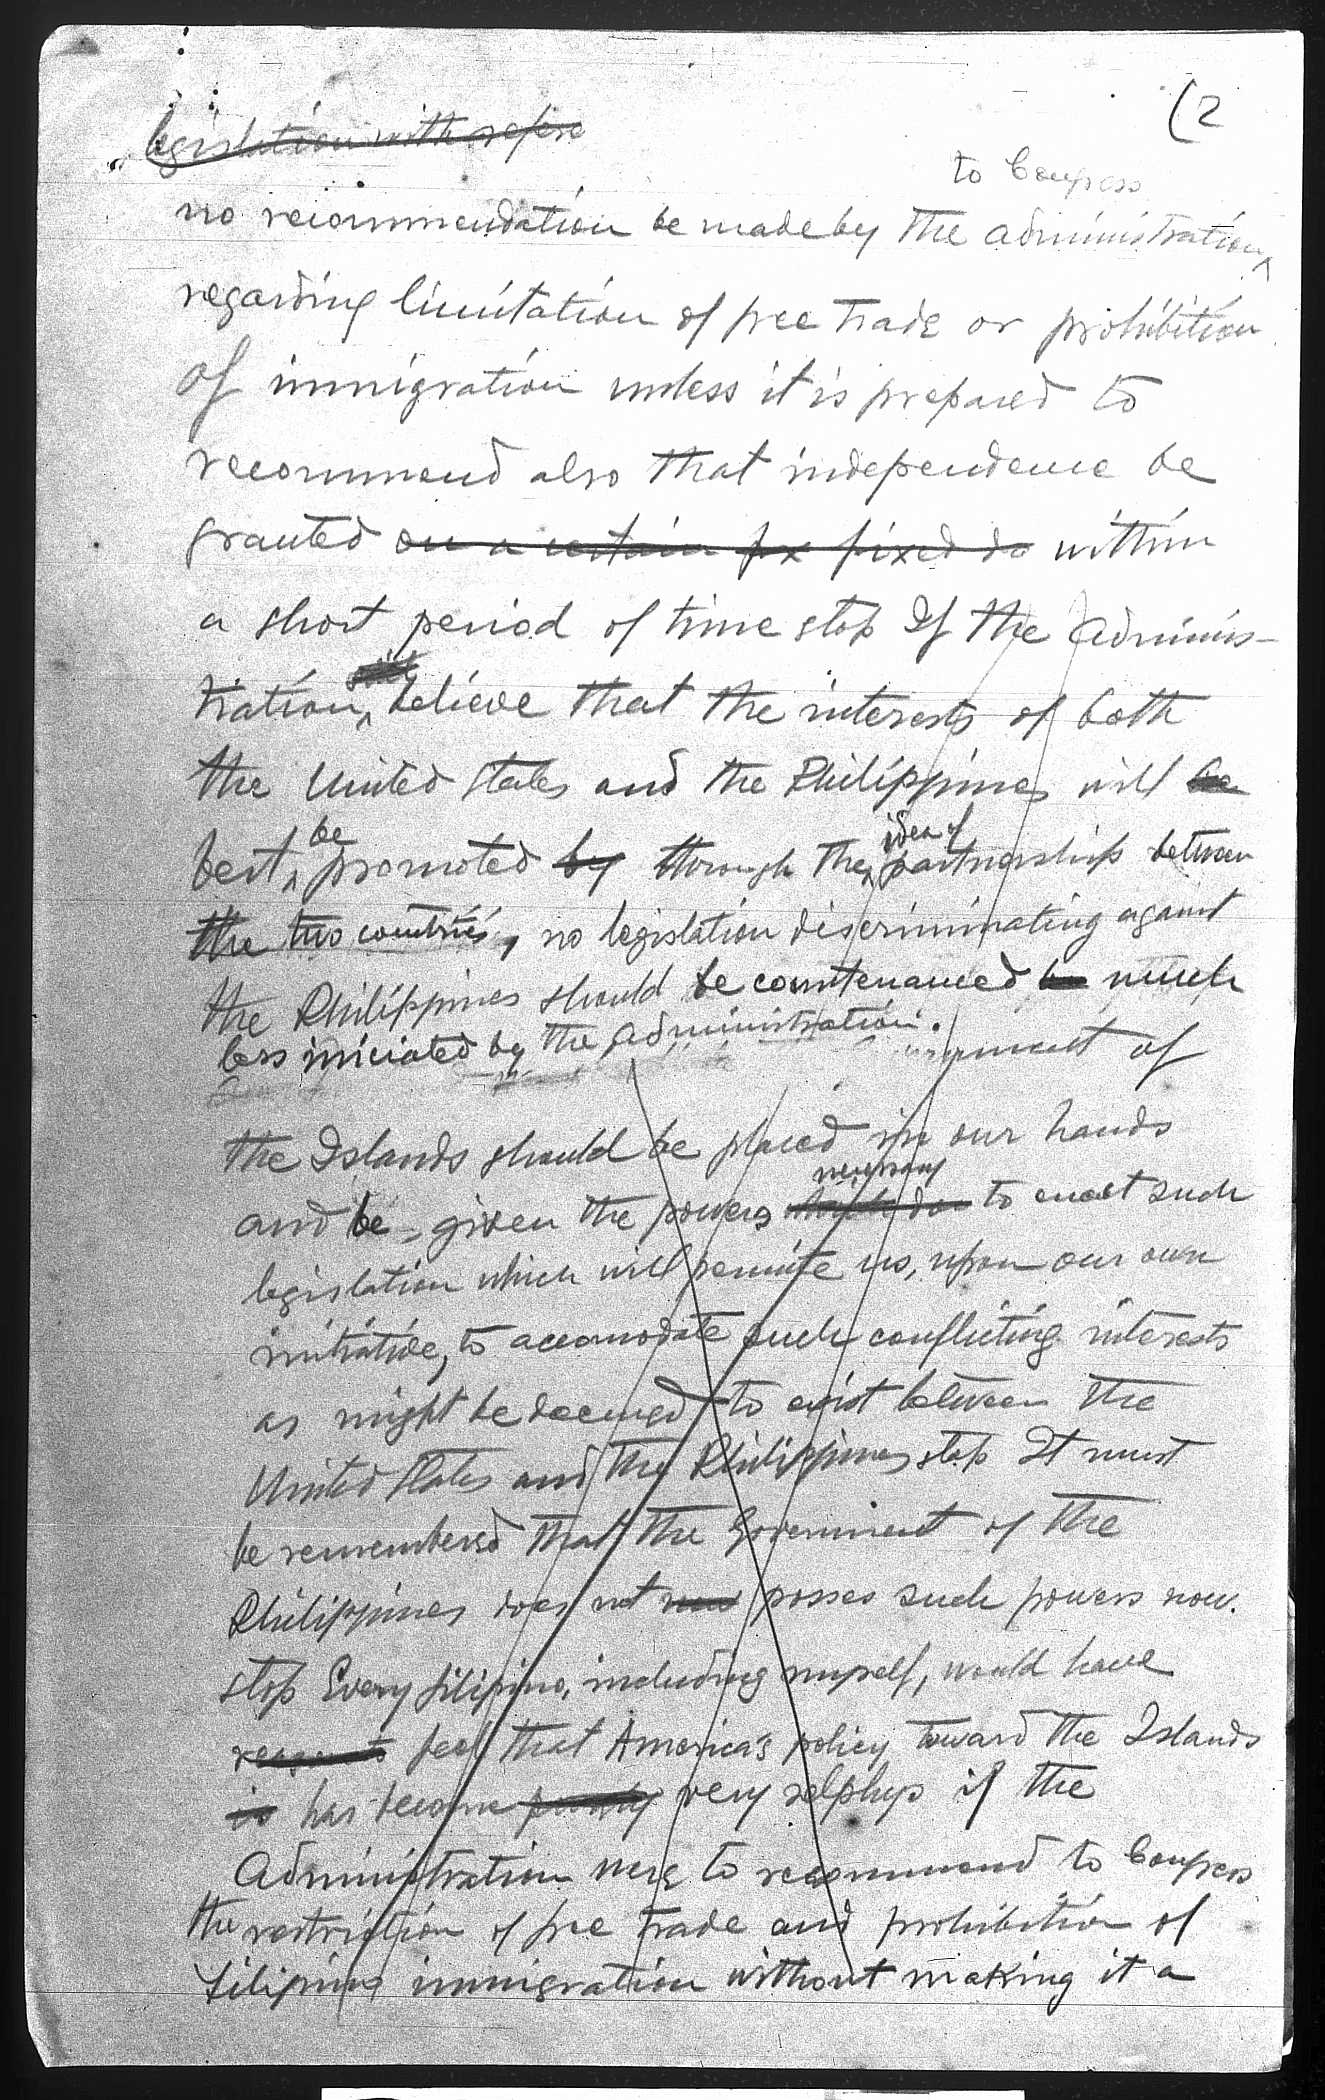 (2
legislation with refere
to Congress
no recommendation be made by the administration
regarding limitation of free trade or prohibition
of immigration unless it is prepared to
recommend also that independence be
granted on a certain fix fixed da within
a short period of time stop If the Adminis-
tration, believe that the interests of both
the United States and the Philippines will be
be idea of
best promoted by through the partnership between
the two countries, no legislation discriminating against
the Philippines should be countenanced be much
less iniciated by the administration.
of
the Islands should be placed in our hands
necessary
and be given the powers to enact such
legislation which will permite us, upon our own
initiative, to accomodate such conflicting interests
as might be deemed to exist between the
United States and the Philippines stop It must
be remembered that the Government of the
Philippines does not posses such powers now.
stop Every filipino, including myself, would have
feel that America's policy toward the Islands
is has become very selphys if the
Administration were to recommend to Congress
the restriction of free trade and prohibition of
filipino immigration without making it a